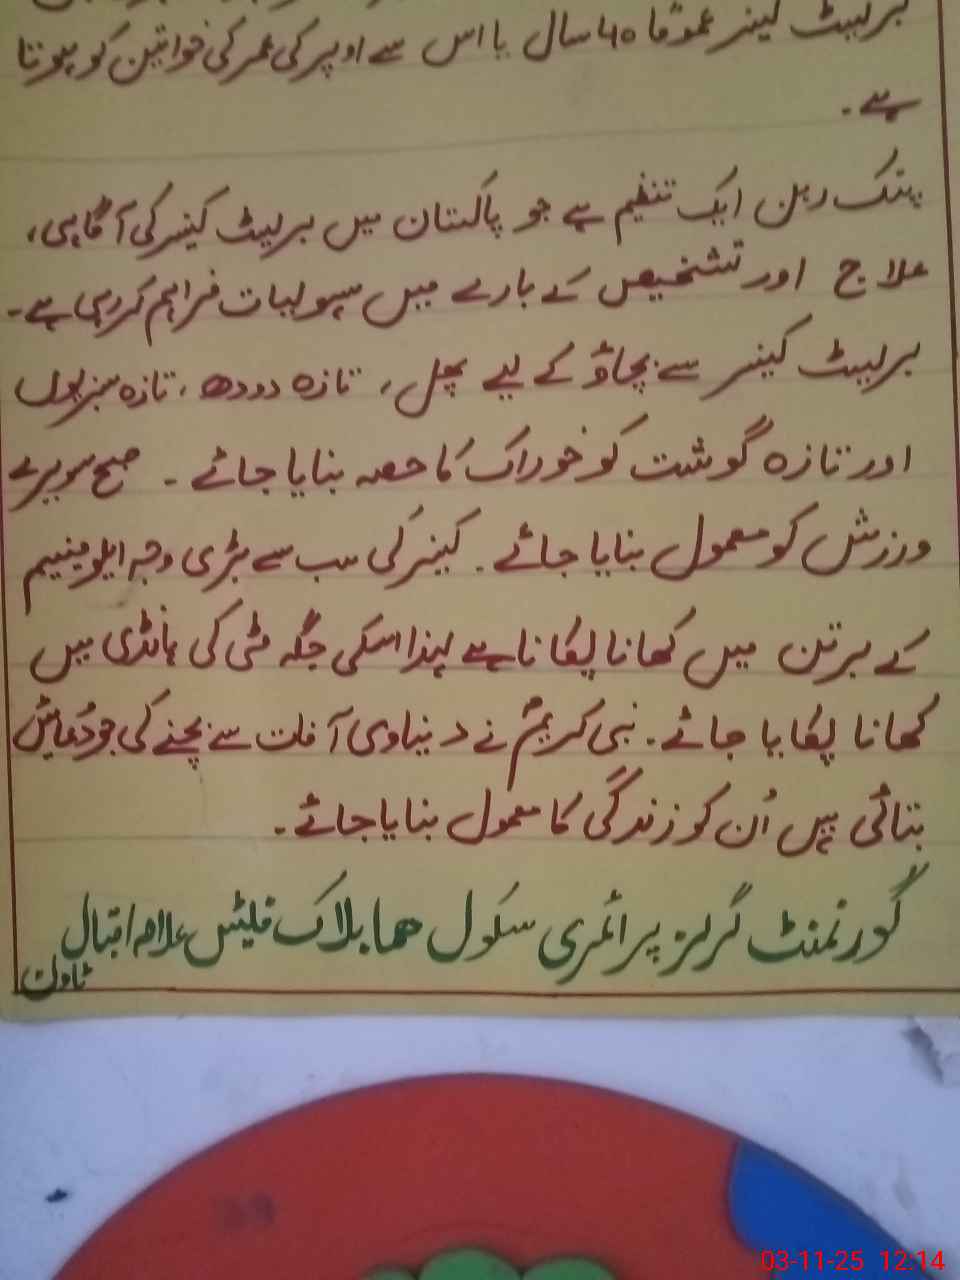 بریسٹ کینسر عموماً 40 سال یا اس سے اوپر کی عمر کی خواتین کو ہوتا
ہے۔
پنک ربن ایک تنظیم ہے جو پاکستان میں بریسٹ کینسر کی آگاہی،
علاج اور تشخیص کے بارے میں سہولیات فراہم کر رہی ہے۔
بریسٹ کینسر سے بچاؤ کے لیے پھل، تازہ دودھ، تازہ سبزیوں
اور تازہ گوشت کو خوراک کا حصہ بنایا جائے۔ صبح سویرے
ورزش کو معمول بنایا جائے۔ کینسر کی سب سے بڑی وجہ ایلومینیم
کے برتن میں کھانا پکانا ہے لہذا اسکی جگہ مٹی کی ہانڈی میں
کھانا پکایا جائے۔ نبی کریمؐ نے دنیاوی آفات سے بچنے کی جو دُعائیں
بتائی ہیں اُن کو زندگی کا معمول بنایا جائے۔
گورنمنٹ گرلز پرائمری سکول ھما بلاک فلیٹس علامہ اقبال
ٹاون
03-11-25 12:14